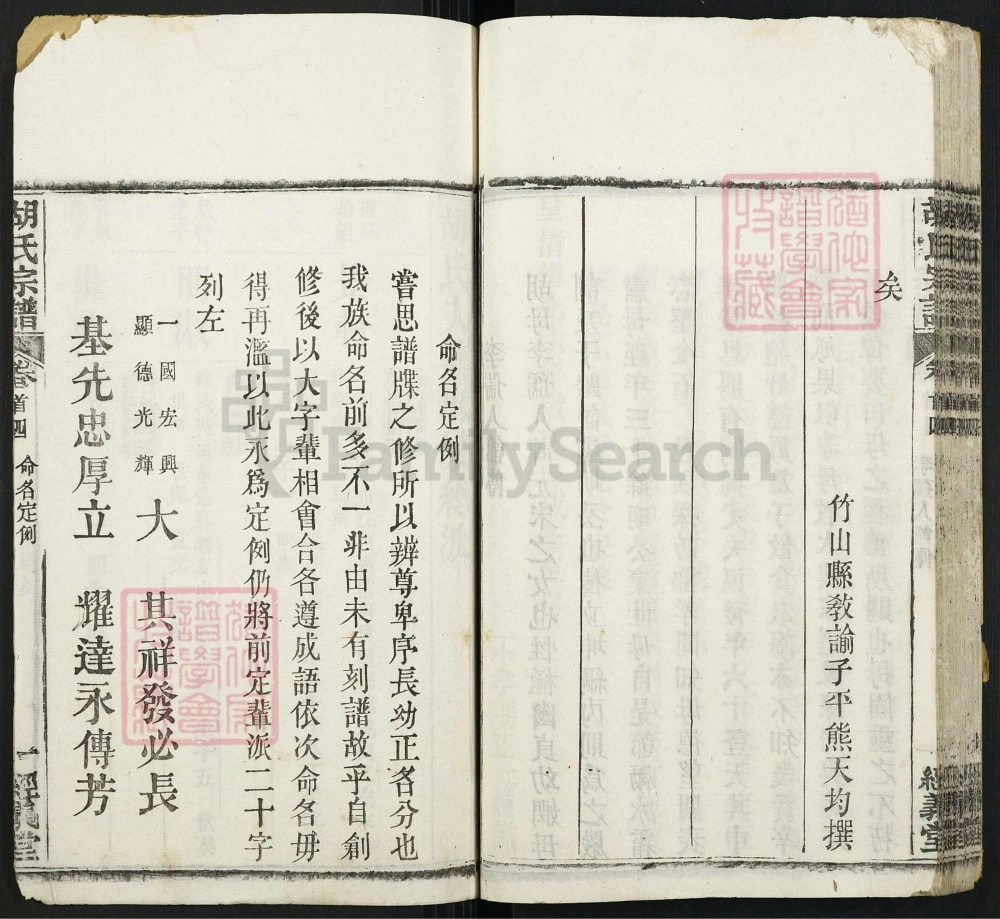 矣
竹山縣教諭子平熊天均撰
命名定例
嘗思譜牒之修所以辨尊卑序長幼正名分也
我族命名前多不一非由未有刻譜故乎自創
修後以大字輩相會合各遵成語依次命名毋
得再濫以此永爲定例仍將前定輩派二十字
列左
一國宏興
顯德光輝
大 其祥發必長
基先忠厚立 耀達永傳芳
胡氏宗譜
卷首四 命名定例
一
經義堂
胡氏宗譜
經義堂
猶他家
譜學會
收藏
猶他家
譜學會
收藏
FamilySearch